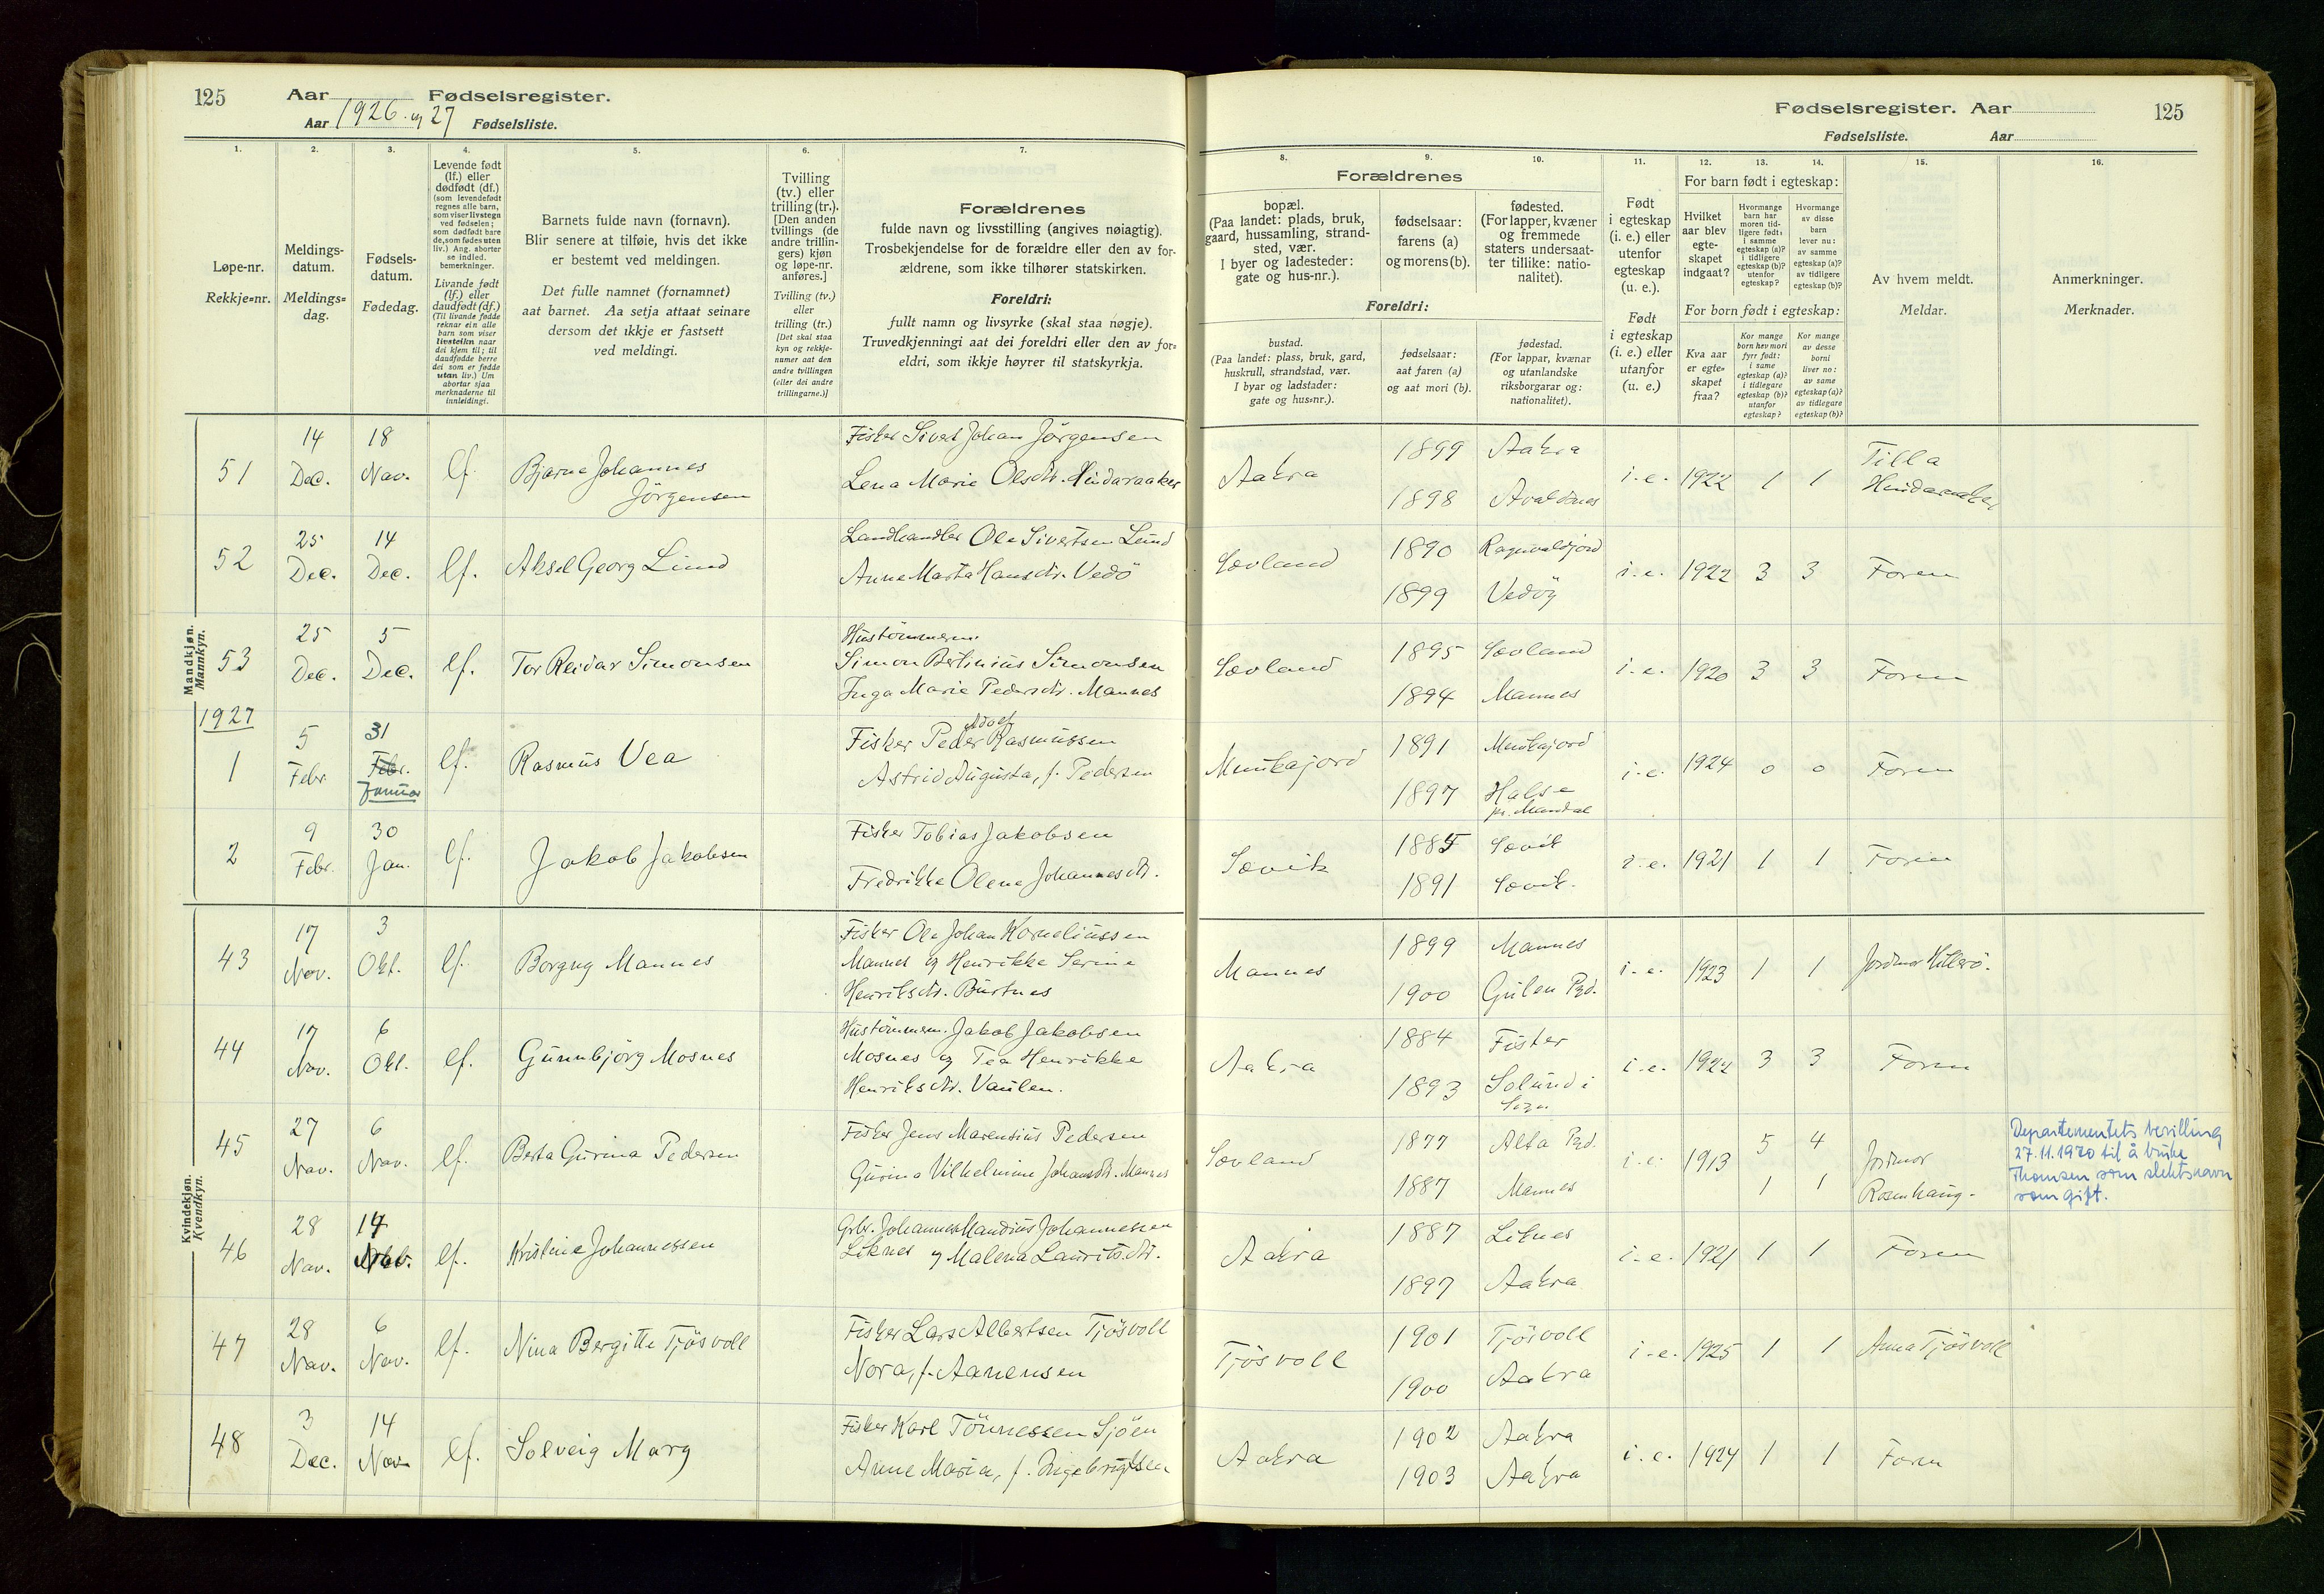 125 Aar 1926 og 27 Fødselsregister.
Aar Fødselsliste.
Fødselsregister. Aar 125
Fødselsliste. Aar
1. 2. 3. 4. 5. 6. 7. 8. 9. 10. 11. 12. 13. 14. 15. 16.
Løpe-nr.
Rekkje=nr.
Meldings-
datum.
Meldings=
dag.
Fødsels-
datum.
Fødedag.
Levende født
(lf.) eller
dødfødt (df.)
(som levendefødt
regnes alle barn,
som viser livstegn
ved fødselen;
som dødfødt bare
de, som fødes uten
liv.) Ang. aborter
se indled.
bemerkninger.
Livande født
(lf.) eller
daudfødt (df.)
(Til livande fødde
reknar ein alle
barn som viser
livsteikn naar
dei kjem til; til
daudfødde berre
dei som er fødde
utan liv.) Um
abortar sjaa
merknaderne til
innleidingi.
Barnets fulde navn (fornavn).
Blir senere at tilføie, hvis det ikke
er bestemt ved meldingen.
Det fulle namnet (fornamnet)
aat barnet. Aa setja attaat seinare
dersom det ikkje er fastsett
ved meldingi.
Tvilling
(tv.) eller
trilling (tr.).
[Den anden
tvillings (de
andre trillin-
gers) kjøn
og løpe-nr.
anføres.]
Tvilling (tv.)
eller
trilling (tr.)
[Det skal staa
kyn og rekkje-
numer aat den
andre tvillingen
(eller dei andre
trillingarne.)]
Forældrenes
fulde navn og livsstilling (angives nøiagtig).
Trosbekjendelse for de forældre eller den av for-
ældrene, som ikke tilhører statskirken.
Foreldri:
fullt namn og livsyrke (skal staa nøgje).
Truvedkjenningi aat dei foreldri eller den av for=
eldri, som ikkje høyrer til statskyrkja.
Forældrenes
bopæl.
(Paa landet: plads, bruk,
gaard, hussamling, strand-
sted, vær.
I byer og ladesteder:
gate og hus-nr.).
fødselsaar:
farens (a)
og morens (b).
fødested.
(For lapper, kvæner
og fremmede
staters undersaat-
ter tillike: natio-
nalitet).
Foreldri:
bustad.
(Paa landet: plass, bruk, gard,
huskrull, strandstad, vær.
I byar og ladstader:
gate og hus=nr.).
fødselsaar:
aat faren (a)
og aat mori (b).
fødestad.
(For lappar, kvænar
og utanlandske
riksborgarar og:
nationalitet).
Født
i egteskap
(i. e.) eller
utenfor
egteskap
(u. e.).
Født
i egteskap
(i. e.) eller
utanfor
(u. e.)
For barn født i egteskap:
Hvilket
aar blev
egte-
skapet
indgaat?
Hvormange
barn har
moren tid-
ligere født:
i samme
egteskap (a)?
i tidligere
egteskap (b)?
utenfor
egteskap?
Hvormange
av disse
barn
lever nu:
av samme
egteskap (a)?
av tidligere
egteskap (b)?
For born født i egteskap:
Kva aar
er egte=
skapet
fraa?
Kor mange
born hev mori
fyrr født:
i same
egteskap (a)?
i tidlegare
egteskap (b)?
utanfor
egteskap?
Kor mange
av desse
borni
liver no:
av same
egteskap (a)?
av tidlegare
egteskap (b)?
Av hvem meldt.
Meldar.
Anmerkninger.
Merknader.
Mandkjøn.
Mannkyn.
51 14 Dec. 18 Nav. lf. Bjarne Johannes
Jörgensen
Fisker Sivert Johan Jörgensen
Lena Marie Olsdtr. Hindaraaker
Aakra 1899 Aakra
1898 Avaldsnes
i.e. 1922 1 1 Tilla
52 25 Dec. 14 Dec. lf. Aksel Georg Lund
Landhandler Ole Sivertsen Lund
Anne Marta Hansdtr. Vedö
Sævland 1890
1899 Vedöy
i.e. 1922 3 3 Foren
53 25 Dec. 5 Dec. lf. Tor Reidar Simonsen
Hustömmerm.
Simon Bertinius Simonsen
Inga Marie Pedersdtr. Mannes
Sævland 1895 Sævland
1894 Mannes
i.e. 1920 3 3 Foren
1927
1 5 Febr. 31 Febr. Januar lf. Rasmus Vea
Fisker Peder Adolf Rasmussen
Astrid Augusta, f. Pedersen
Munkajord 1891 Munkajord
1897 Halse
pr. Mandal
i.e. 1924 0 0 Foren
2 9 Febr. 30 Jan. lf. Jakob Jakobsen
Fisker Tobias Jakobsen
Fredrikke Olene Johannesdtr.
Sævik 1885 Sævik
1891 Sævik.
i.e. 1921 1 1 Foren
Kvindekjøn.
Kvendkyn.
43 17 Nov. 3 Okt. lf. Borgny Mannes
Fisker Ole Johan Korneliussen
Mannes og Henrikke Serine
Henriksdtr. Burtnes
Mannes 1899 Mannes
1900 Gulen Pgd.
i.e. 1923 1 1 Jordmor Hillerö.
44 17 Nov. 6 Okt. lf. Gunnbjörg Mosnes
Hustömmerm. Jakob Jakobsen
Mosnes og Tea Henrikke
Henriksdtr. Vaulen.
Aakra 1884 Fister
1893 Solund i
Sogn
i.e. 1922 3 3 Foren
45 27 Nov. 6 Nov. lf. Berta Gurina Pedersen
Fisker Jens Marensius Pedersen
Gurina Vilhelmine Johansdtr. Mannes
Sævland 1877 Alta Pgd.
1887 Mannes
i.e. 1913 5 4 Jordmor
1 1 Rosenhaug.
Departementets bevilling
27.11.1920 til å bruke
Thomsen som slektsnavn
som gift.
46 28 Nov. 14 Nov. lf. Kristine Johannessen
Grbr. Johannes Mandius Johannessen
Liknes og Malena Lauritsdtr.
Aakra 1887 Liknes
1897 Aakra
i.e. 1921 1 1 Foren
47 28 Nov. 6 Nov. lf. Nina Bergitte Tjösvoll
Fisker Lars Albertsen Tjösvoll
Nora, f. Aanensen
Tjösvoll 1901 Tjösvoll
1900 Aakra
i.e. 1925 1 1 Anna Tjösvoll
48 3 Dec. 14 Nov. lf. Solveig Marg
Fisker Karl Tönnessen Sjöen
Anne Maria, f. Ingebrigtsen
Aakra 1902 Aakra
1903 Aakra
i.e. 1924 1 1 Foren